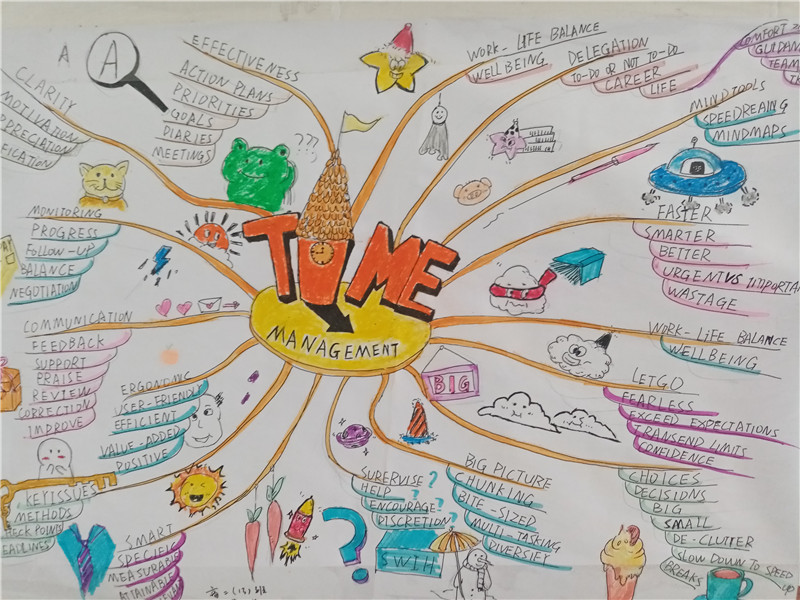 TIME
MANAGEMENT
A
A
EFFECTIVENESS
ACTION PLANS
PRIORITIES
GOALS
DIARIES
MEETINGS
WORK-LIFE BALANCE
WELLBEING
DELEGATION
TO-DO OR NOT TO-DO
CAREER
LIFE
COMFORT
GUIDAN
TEAM
MINDTOOLS
SPEEDREAING
MINDMAPS
FASTER
SMARTER
BETTER
URGENT VS IMPORTAN
WASTAGE
WORK-LIFE BALANCE
WELLBEING
LETGO
FEARLESS
EXCEED EXPECTATIONS
TRANSEND LIMITS
CONFIDENCE
CHOICES
DECISIONS
BIG
SMALL
DE-CLUTTER
SLOW DOWN TO SPEED UP
BREAKS
BIG
BIG PICTURE
CHUNKING
BITE-SIZED
MULTI-TASKING
DIVERSIFY
SUREVISE?
HELP ?
ENCOURAGE?
DISCRETION?
?
SWIH
SMART
SPECIFI
MEASURABLE
ATTAINABLE
KEYISSUES
METHODS
HECK POINTS
EADLINES
ERGONOMIC
USER-FRIENDLY
EFFICIENT
VALUE-ADDED
POSITIVE
COMMUNICATION
FEEDBACK
SUPPORT
PRAISE
REVIEW
CORRECTION
IMPROVE
MONITORING
PROGRESS
FOLLOW-UP
BALANCE
NEGOTIATION
CLARITY
MOTIVATION
PPRECIATION
IFICATION
???